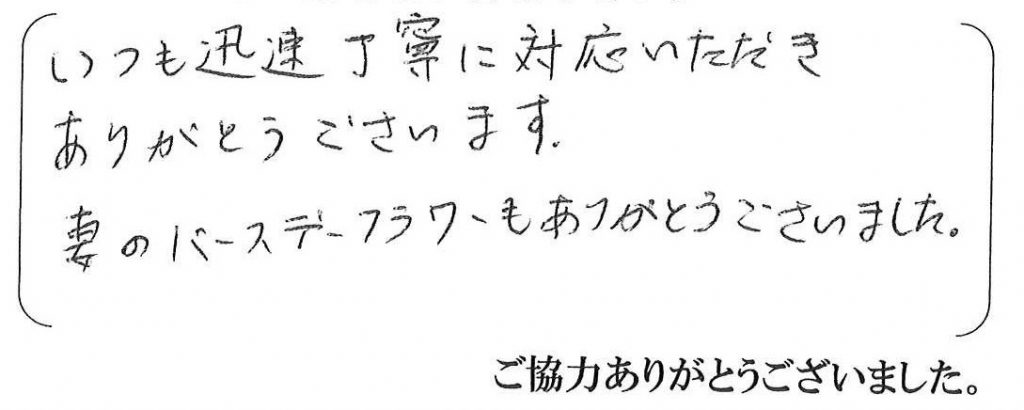 いつも迅速丁寧に対応いただき
ありがとうございます.
妻のバースデーフラワーもありがとうございました。
ご協力ありがとうございました。